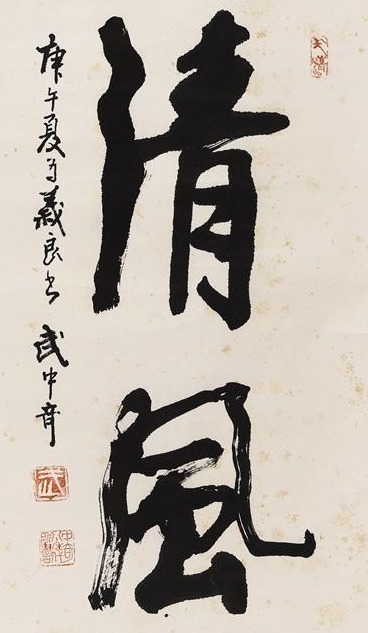 清風
庚午夏為義良書 武中奇